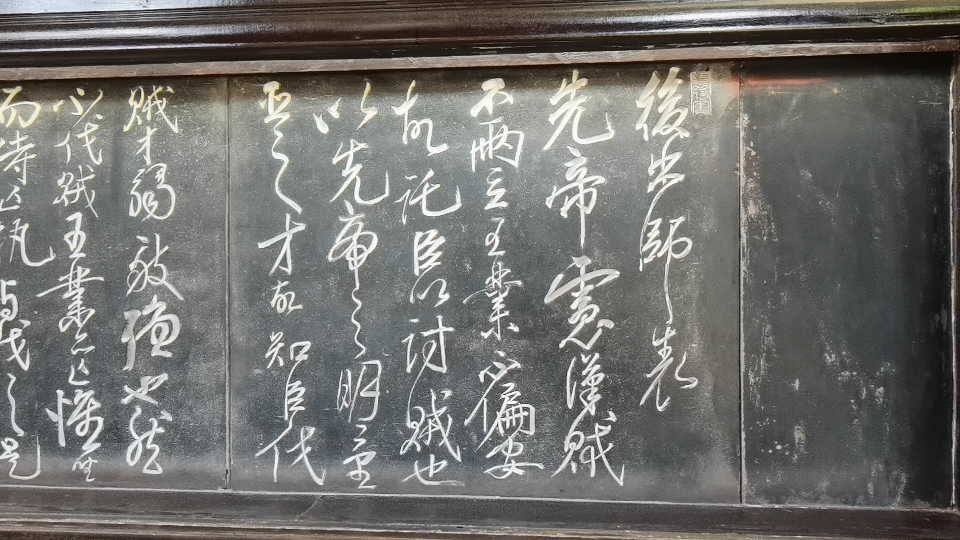 後出師表
先帝慮漢賊
不兩立王業不偏安
故託臣以討賊也
以先帝之明量
臣之才故知臣伐
賊才弱敵強也然
不伐賊王業亦亡惟坐
而待亡孰與伐之是